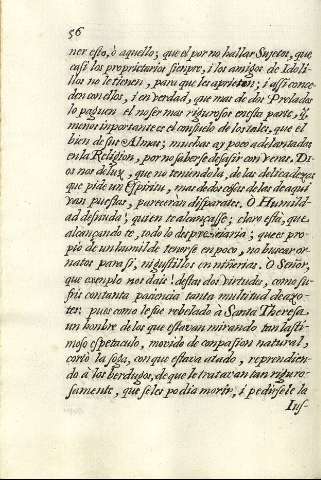 56
ner esto, ò aquello; que el por no hallar Sujetos, que
casi los proprietarios siempre, i los amigos de Idoli-
llos no le tienen, para que les aprieten; i assi conce-
den con ellos, i en verdad, que mas de dos Prelados
lo paguen el no ser mas rigurosos en esta parte, q̃
menos inportante es el enpleo de los tales, que el
bien de sus Almas; muchas ay poco adelantadas
en la Religion, por no saberse desasir con veras. Di-
os nos de luz, que no teniendola, de las delicadezas
que pide un Espiritu, mas de dos cosas de las de aqui
van puestas, pareceràn disparates. O Humili-
ad desnuda! quien te alcançasse; claro està, que
alcançando te, todo lo despreciaria; que es pro-
pio de un humilde tenerse en poco, no buscar or-
natos para si, ni gustillos en niñerias. O Señor,
que exenplo nos dais! destas dos virtudes, como su-
fris con tanta paciencia tanta multitud de aço-
tes; pues como le fue rebelado à Santa Theresa
un honbre de los que estavan mirando tan lasti-
moso espetaculo, movido de conpasion natural,
cortò la soga, con que estava atado, reprendien-
do à los berdugos, de que le tratavan tan riguro-
samente, que se les podia morir, i pedirsele la
Ius-